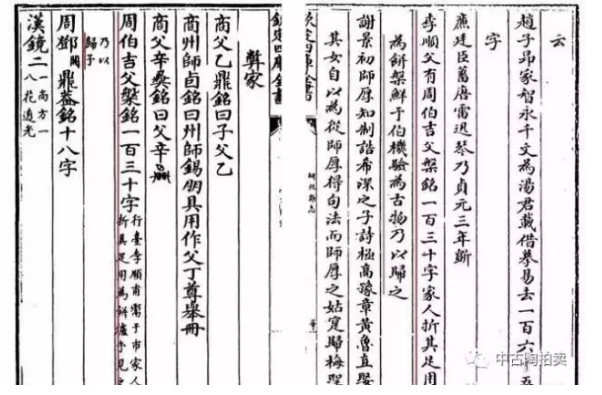 云
趙子昂家智永千文為湯君載借摹易去一百六十五
字
廉建臣蓄唐雷迅琴乃貞元三年斵
李順父有周伯吉父槃銘一百三十字家人折其足用
為餅槃鮮于伯機驗為古物乃以歸之
謝景初師厚知制誥希深之子詩極高豫章黃魯直娶
其女自以為從師厚得句法而師厚之姑寔歸梅聖
欽定四庫全書
研北雜志
彝家
商父乙鼎銘曰子父乙
商州師卣銘曰州師錫朋具用作父丁尊舉冊
商父辛彝銘曰父辛
周伯吉父槃銘一百三十字行臺李順甫鬻于市家人折其足用為餅爐予見之
乃以歸予
周鄧鼎蓋銘十八字
漢鏡二一南方一八花透光
中古陶拍卖